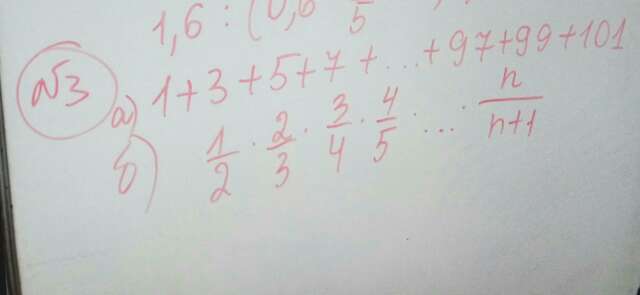 1,6 : (0,6 5
№3
а) 1+3+5+7+...+97+99+101
б) 1/2 · 2/3 · 3/4 · 4/5 · ... · n/n+1